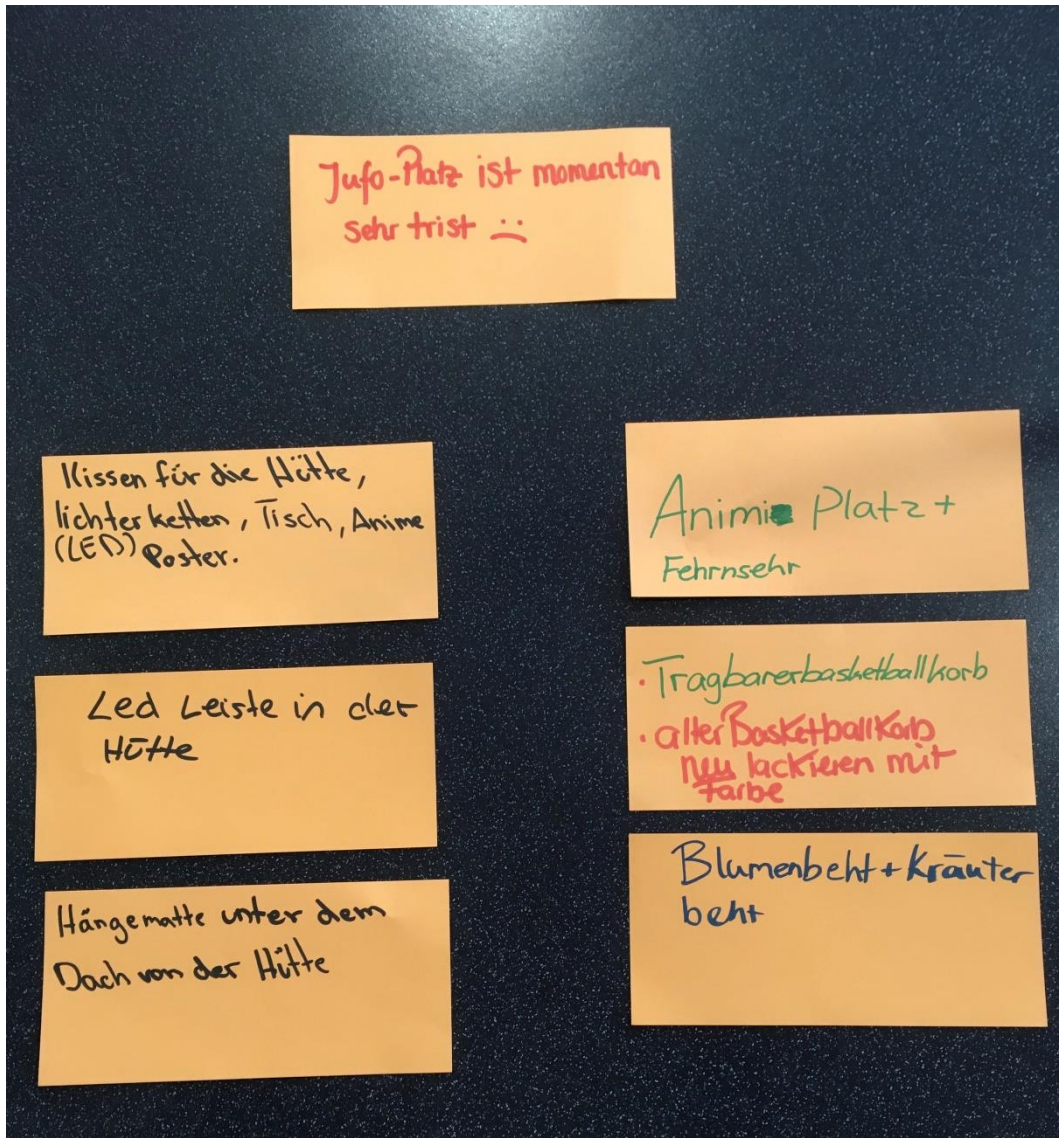 Jufo-Platz ist momentan
sehr trist :(
Kissen für die Hütte,
lichterketten, Tisch, Anime
(LED) Poster.
Led Leiste in der
Hütte
Hängematte unter dem
Dach von der Hütte
Animi Platz +
Fehrnsehr
· Tragbarerbasketballkorb
· alter Basketballkorb
neu lackieren mit
farbe
Blumenbeht + Kräuter
beht